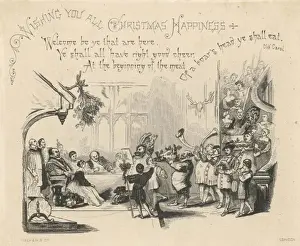 WISHING YOU ALL CHRISTMAS HAPPINESS
Welcome be ye that are here,
Ye shall all have right good cheer,
At the beginning of the meal
Of a boar's head ye shall eat.
Old Carol